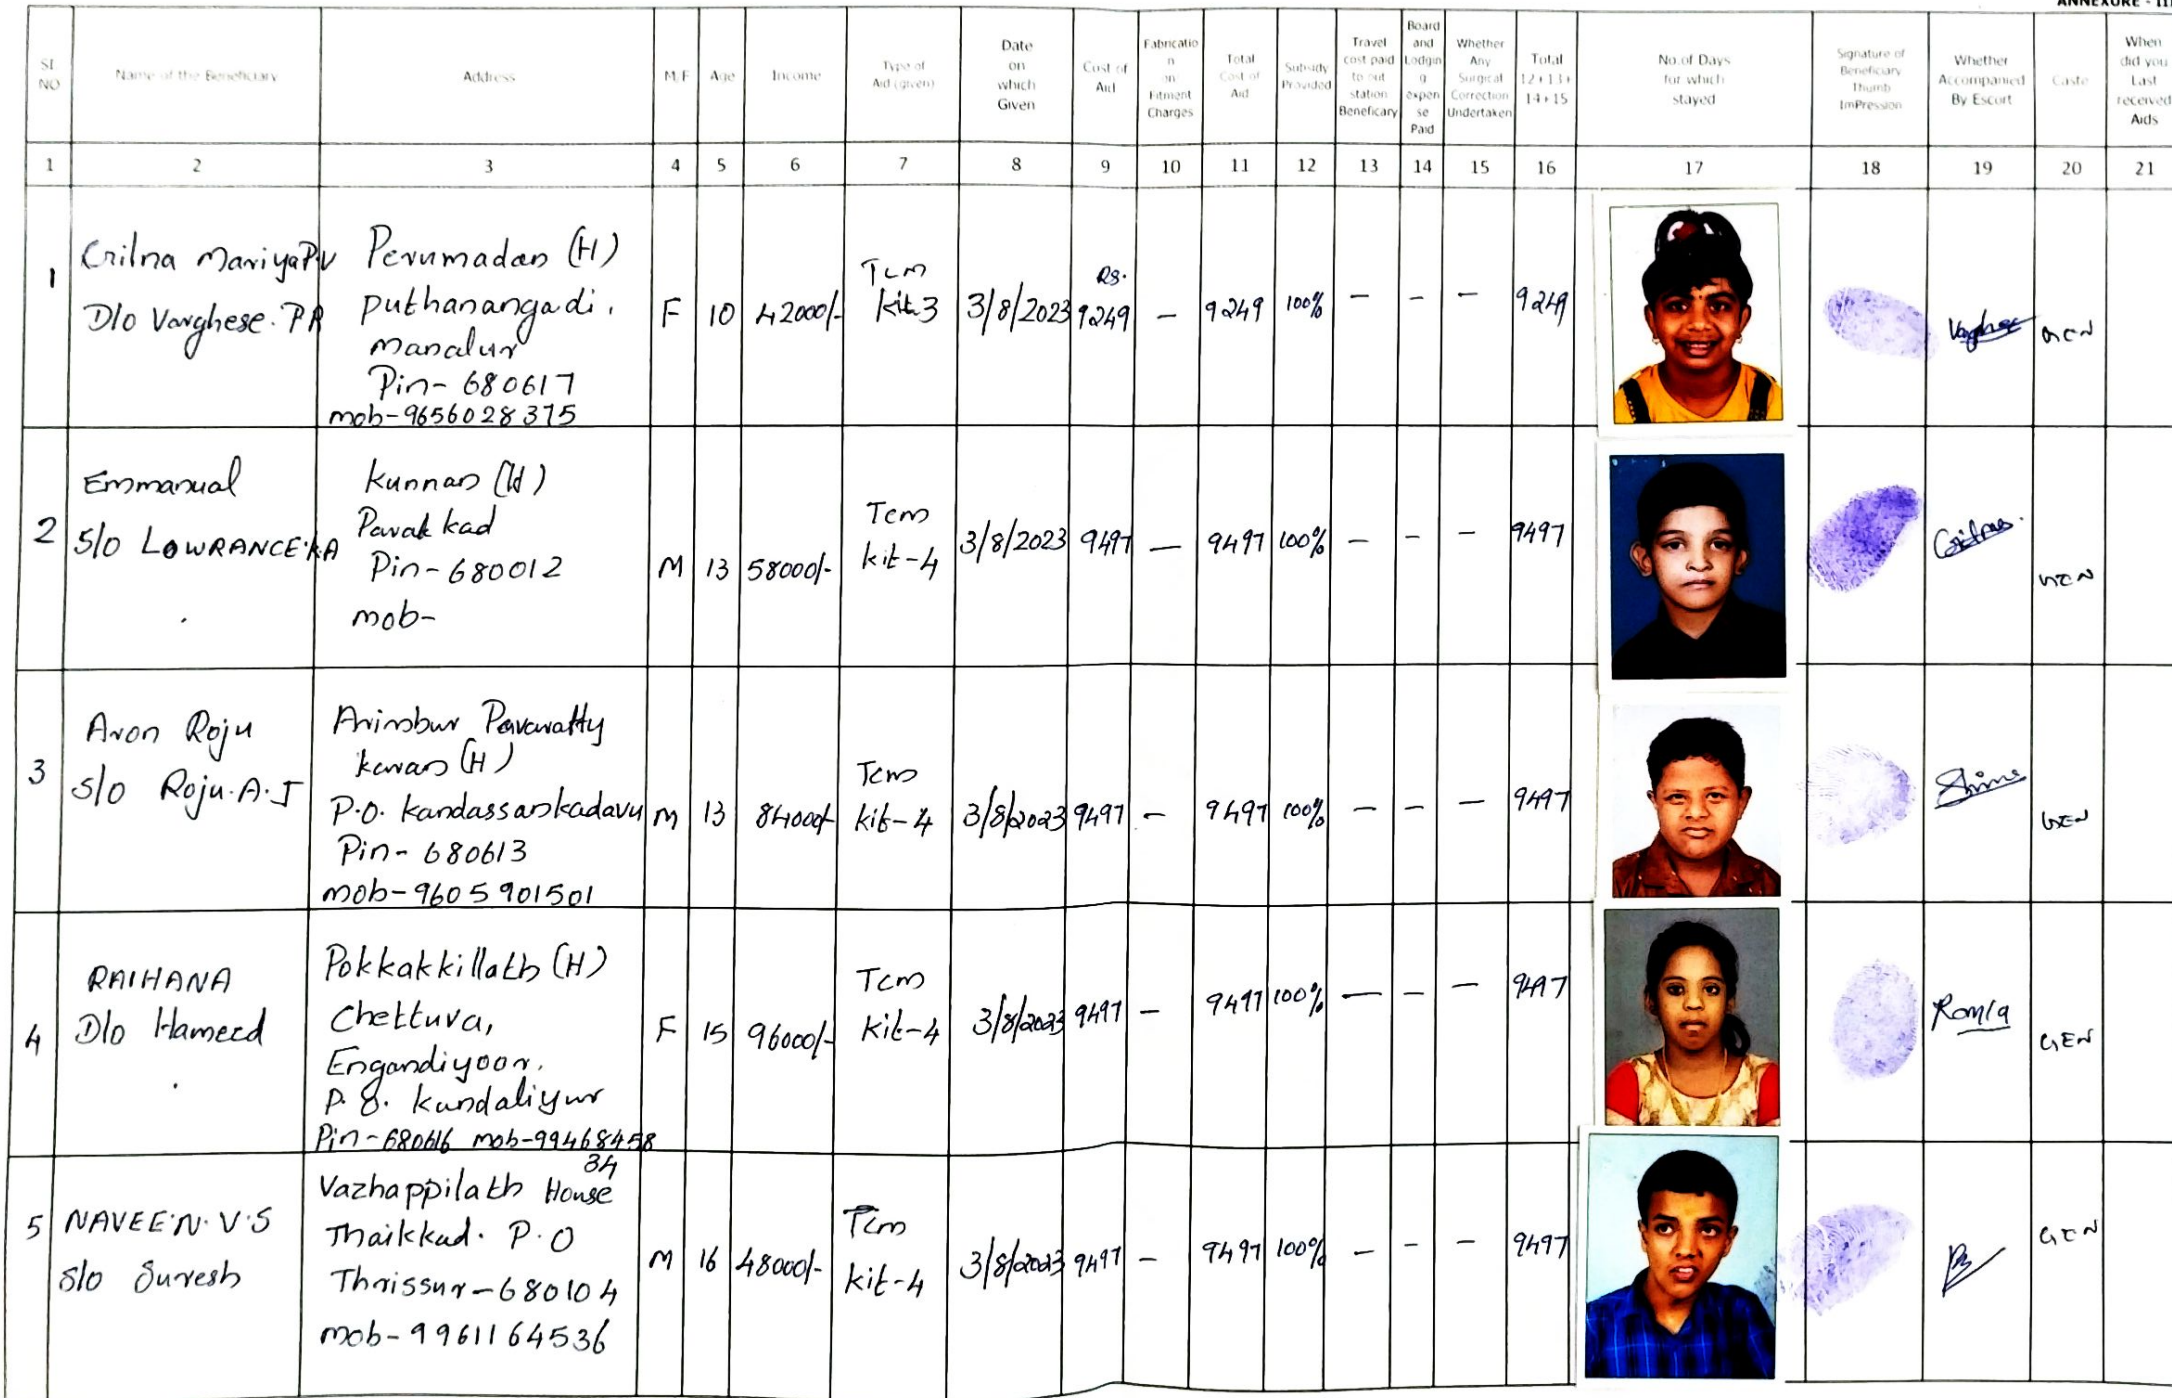 ANNEXURE - III
SL NO
Name of the Beneficiary
Address
M.F
Age
Income
Type of Aid (given)
Date on which Given
Cost of Aid
Fabricatio n in Fitment Charges
Total Cost of Aid
Subsidy Provided
Travel cost paid to out station Beneficiary
Board and Lodgin g expen se Paid
Whether Any Surgical Correction Undertaken
Total 12+13+ 14+15
No.of Days for which stayed
Signature of Beneficiary Thumb ImPression
Whether Accompanied By Escort
Caste
When did you Last received Aids
1 2 3 4 5 6 7 8 9 10 11 12 13 14 15 16 17 18 19 20 21
1
Crilna Mariya P.V
D/o Varghese. P.A
Perumadan (H)
Puthanangadi.
Manalur
Pin- 680617
mob-9656028375
F 10 42000/-
TLM
kit-3
3/8/2023
Rs.
9249 — 9249 100% — — — 9249
Varghese
GEN
2
Emmanual
S/o LOWRANCE.K.A
Kunnan (H)
Parakkad
Pin-680012
mob-
M 13 58000/-
TLM
kit-4
3/8/2023 9497 — 9497 100% — — — 9497
GEN
3
Aron Roju
S/o Roju.A.J
Arimbur Pavaratty
karan (H)
P.O. kandassankadavu
Pin- 680613
mob-9605901501
M 13 84000/-
TLM
kit-4
3/8/2023 9497 — 9497 100% — — — 9497
GEN
4
RAIHANA
D/o Hameed
Pokkakkillath (H)
Chettuva,
Engandiyoor.
P.O. kundaliyur
Pin-680616 mob-99468458
34
F 15 96000/-
TLM
kit-4
3/8/2023 9497 — 9497 100% — — — 9497
Ramla
GEN
5
NAVEEN.V.S
S/o Suresh
Vazhappilath House
Thaikkad. P.O
Thrissur-680104
mob-9961164536
M 16 48000/-
TLM
kit-4
3/8/2023 9497 — 9497 100% — — — 9497
GEN